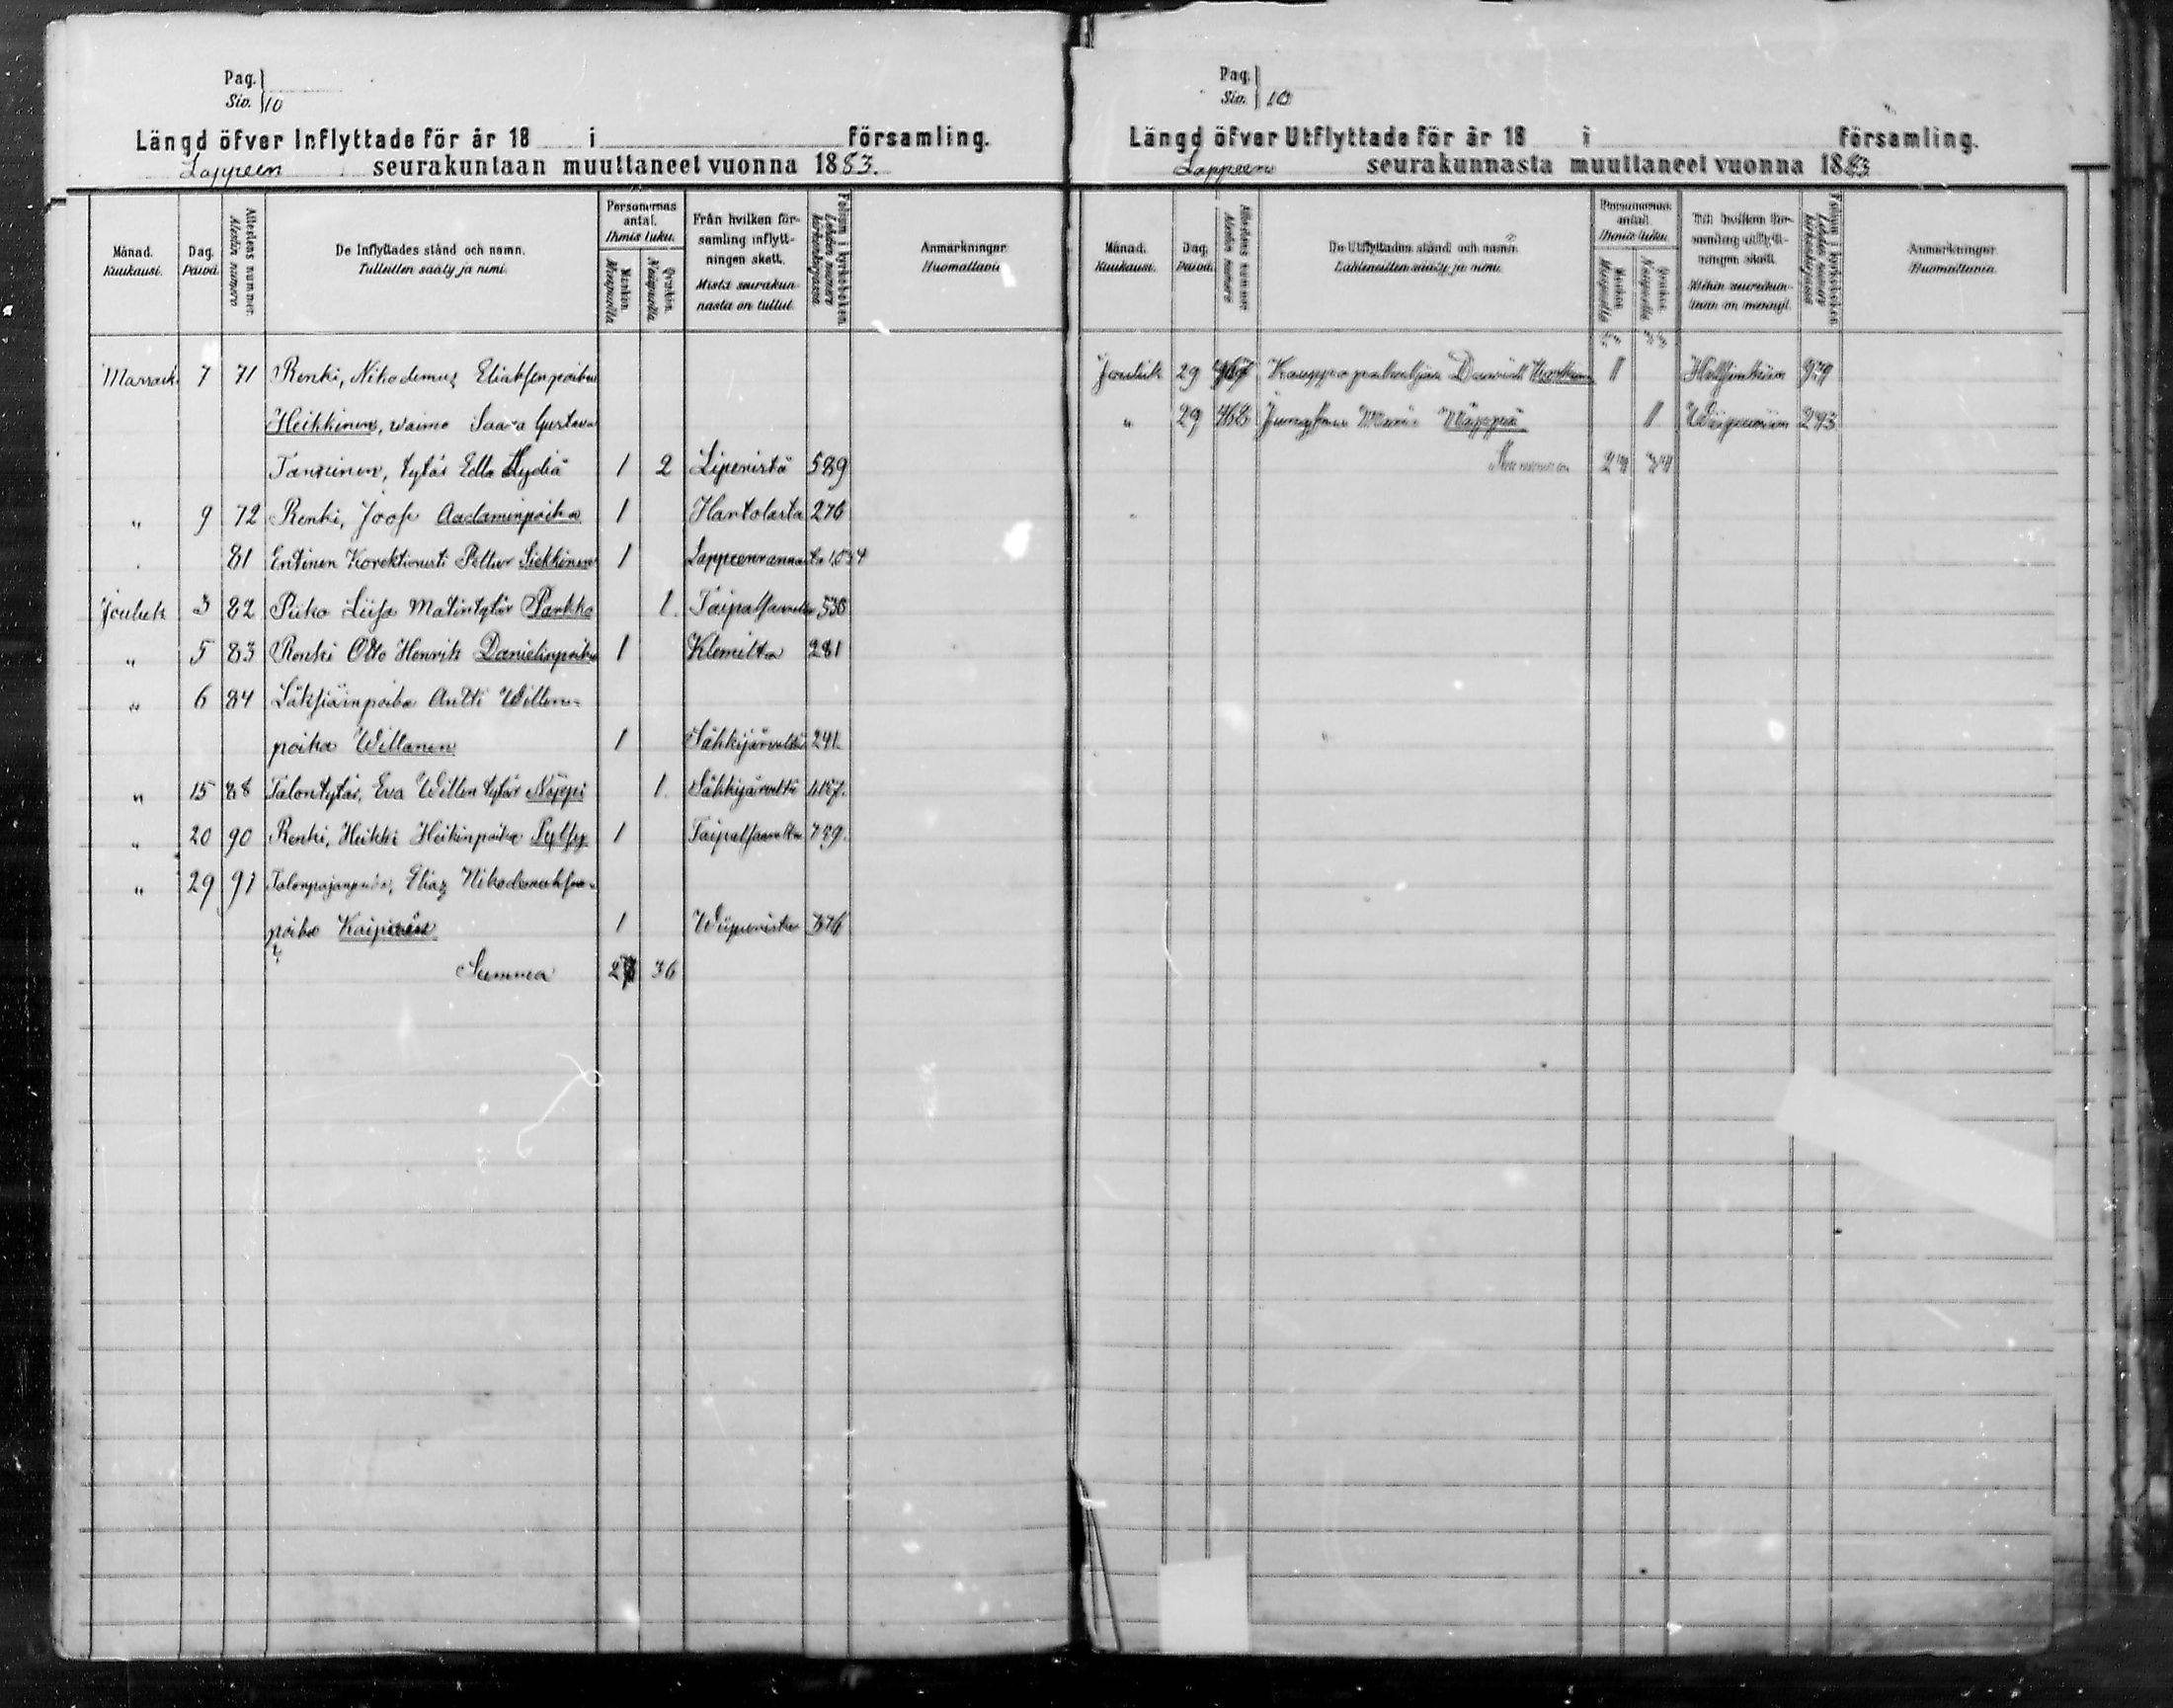 Pag.
Siv. 10
Längd öfver Inflyttade för år 18 i församling.
Lappeen seurakuntaan muuttaneet vuonna 1883.
Månad. Kuukausi.
Dag. Päivä.
Attestens nummer. Atestin numero
De Inflyttades stånd och namn. Tulleitten sääty ja nimi.
Personernas antal. Ihmis luku.
Mankön. Miespuolia
Qvinkön. Naispuolia.
Från hvilken församling inflyttningen skett. Mistä seurakunnasta on tullut.
Folium i kyrkoboken. Lehden numero kirkonkirjassa.
Anmärkningar. Huomattavia
Marrask. 7 71 Renki, Nikodemus Eliaksenpoika
Heikkinen, vaimo Saara Gustava
Tanninen, tytär Edla Lydia 1 2 Liperistä 589
" 9 72 Renki, Joos. Aadaminpoika 1 Hartolasta 276
81 Entinen Korektionisti Petter Siekkinen 1 Lappeenrannasta
Jouluk 3 82 Piika Liisa Matintytär Parkko 1. Taipalsaarelta 530
" 5 83 Renki Otto Henrik Danielinpoika 1 Klemiltä 281
" 6 84 Läksiäinpoika Antti Willen-
poika Willanen 1 Säkkijärveltä 241.
" 15 88 Talontytär, Eva Willentytär Näppi 1. Säkkijärveltä
" 20 90 Renki, Heikki Heikinpoika 1 Taipalsaarelta 759.
" 29 91 Talonpojanpoika, Elias Nikodemuksen-
poika Kaipiainen 1 Wiipurista
Summa 27 36
Pag.
Siv. 10
Längd öfver Utflyttade för år 18 i församling.
Lappeen seurakunnasta muuttaneet vuonna 1883
Månad. Kuukausi.
Dag. Päivä.
Attestens nummer. Atestin numero
De Utflyttades stånd och namn. Lähteneitten sääty ja nimi.
Personernas antal. Ihmis luku.
Mankön. Miespuolia
Qvinkön. Naispuolia
Till hvilken församling utflyttningen skett. Mihin seurakuntaan on mennyt.
Folium i kyrkoboken. Lehden numero kirkonkirjassa
Anmärkningar. Huomattavia.
Jouluk 29 467 Kauppapalvelija 1 Helsinkiin 979
" 29 468 Jungfru Maria Näppiä 1 Wiipuriin 293
Summa